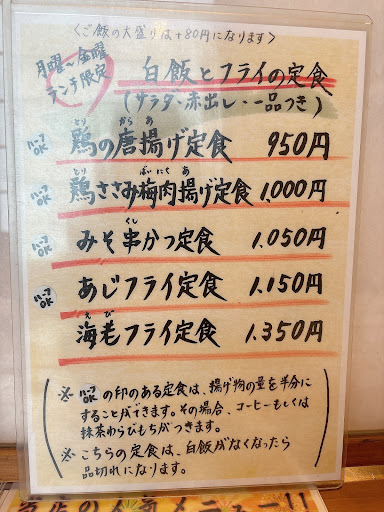 〈ご飯の大盛りは+80円になります〉
月曜～金曜
ランチ限定
白飯とフライの定食
(サラダ・赤出し・一品つき)
ハーフOK 鶏の唐揚げ定食 950円
ハーフOK 鶏ささみ梅肉揚げ定食 1,000円
ハーフOK みそ串かつ定食 1,050円
ハーフOK あじフライ定食 1,150円
海老フライ定食 1,350円
※ ハーフOK の印のある定食は、揚げ物の量を半分に
することができます。その場合、コーヒーもしくは
抹茶わらびもちがつきます。
※ こちらの定食は、白飯がなくなったら
品切れになります。
当店の人気メニュー!!